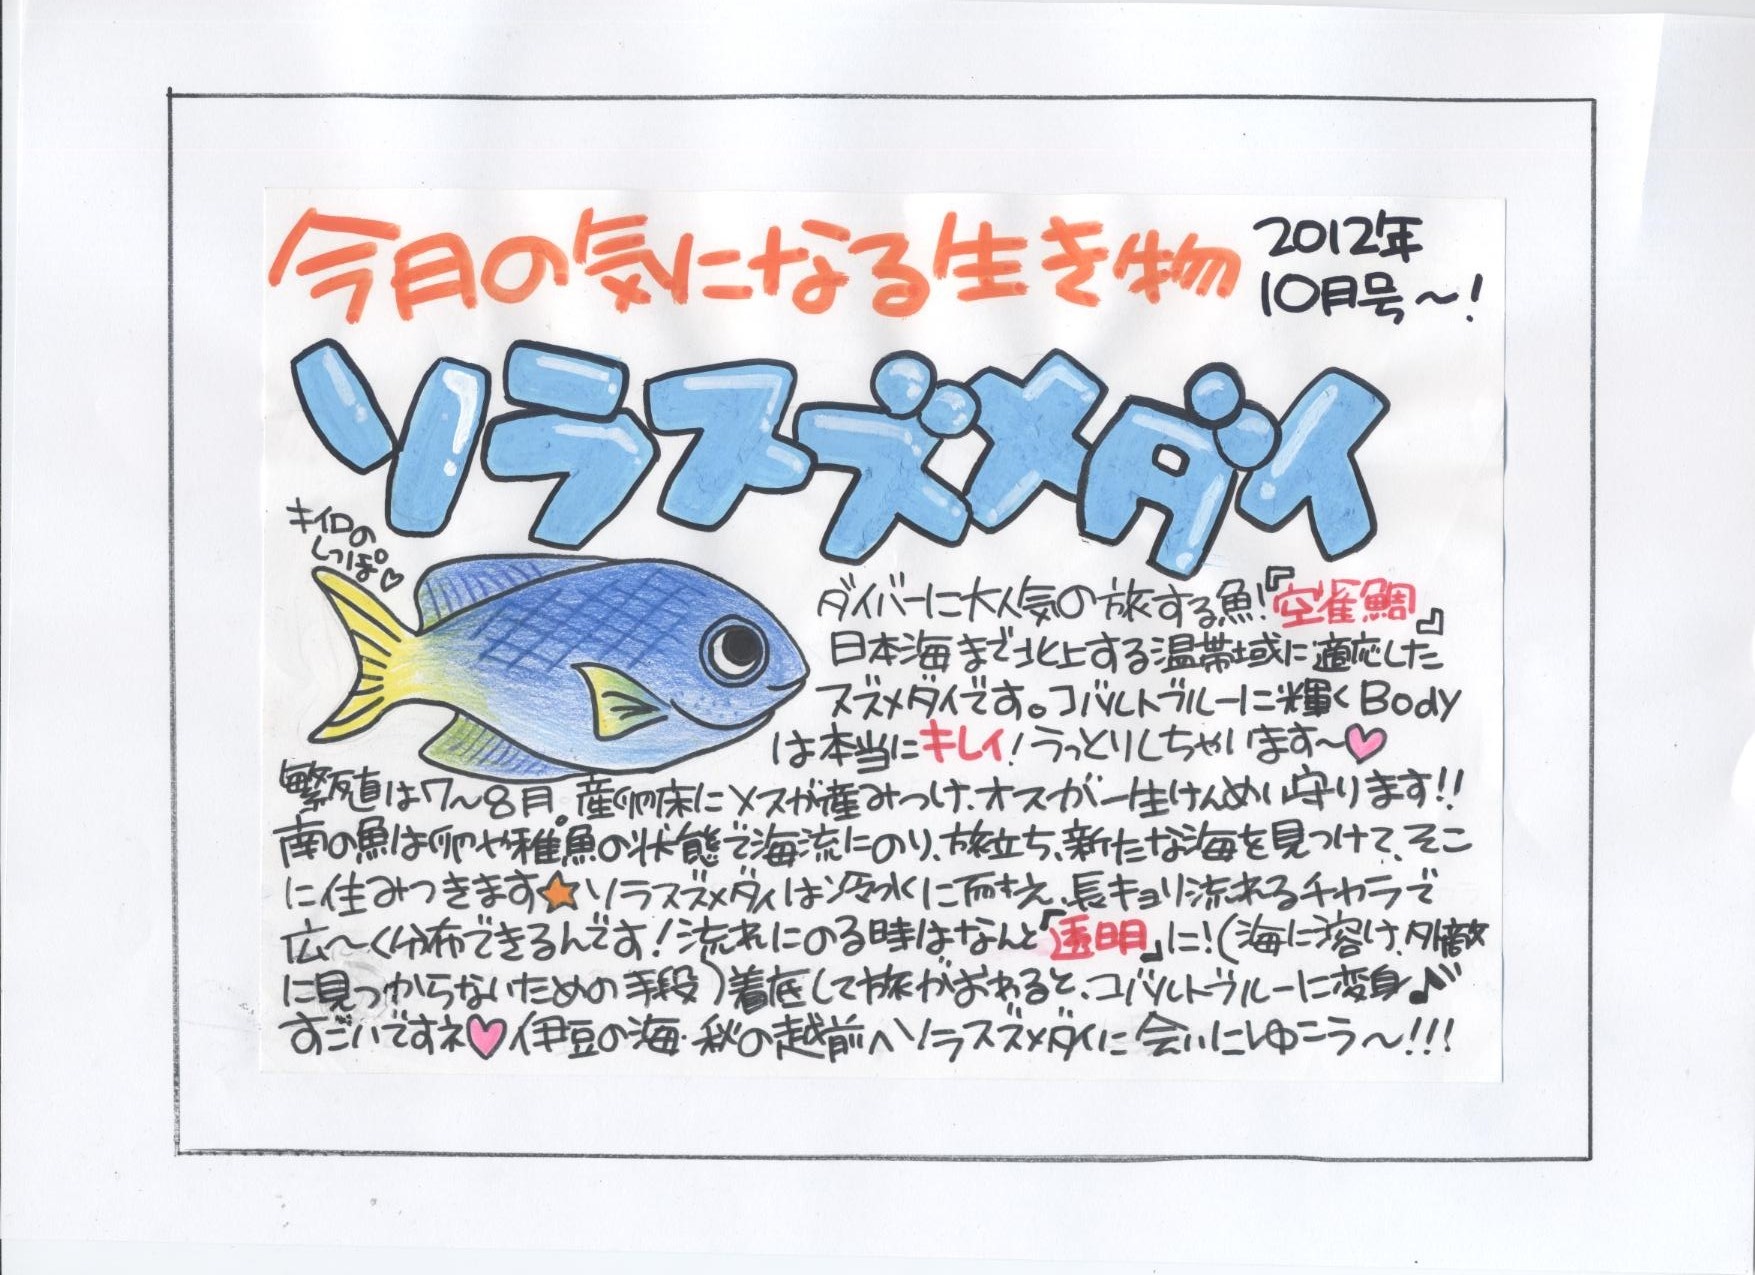 今月の気になる生き物
2012年
10月号～!
ソラスズメダイ
キイロの
しっぽ♡
ダイバーに大人気の旅する魚!『空雀鯛』
日本海まで北上する温帯域に適応した
スズメダイです。コバルトブルーに輝くBody
は本当にキレイ!うっとりしちゃいます～♥
繁殖は7～8月。産卵床にメスが産みつけ、オスが一生けんめい守ります!!
南の魚は卵や稚魚の状態で海流にのり、旅立ち、新たな海を見つけて、そこ
に住みつきます★ソラスズメダイは冷水に耐え、長キョリ流れるチカラで
広～く分布できるんです!流れにのる時はなんと『透明』に!(海に溶け、外敵
に見つからないための手段)着底して旅がおわると、コバルトブルーに変身♪
すごいですネ♥伊豆の海・秋の越前へソラスズメダイに会いにゆこう～!!!